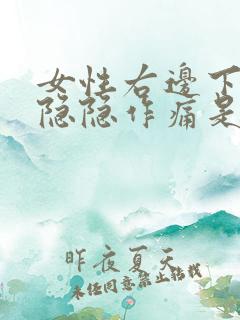 女性右邊下
隐隐作痛是
昨夜夏天
未经同意禁止转载